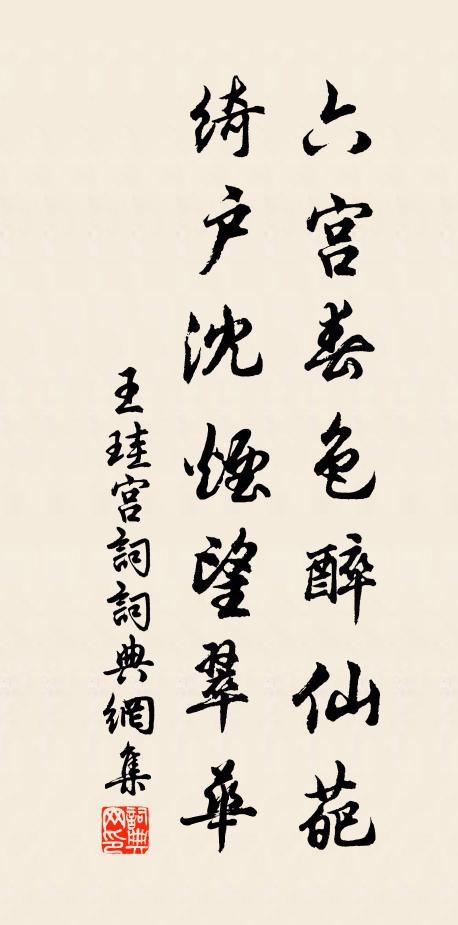 六宫春色醉仙葩
綺户沈煙望翠華
王珪宫詞詞典網集
詞典网印